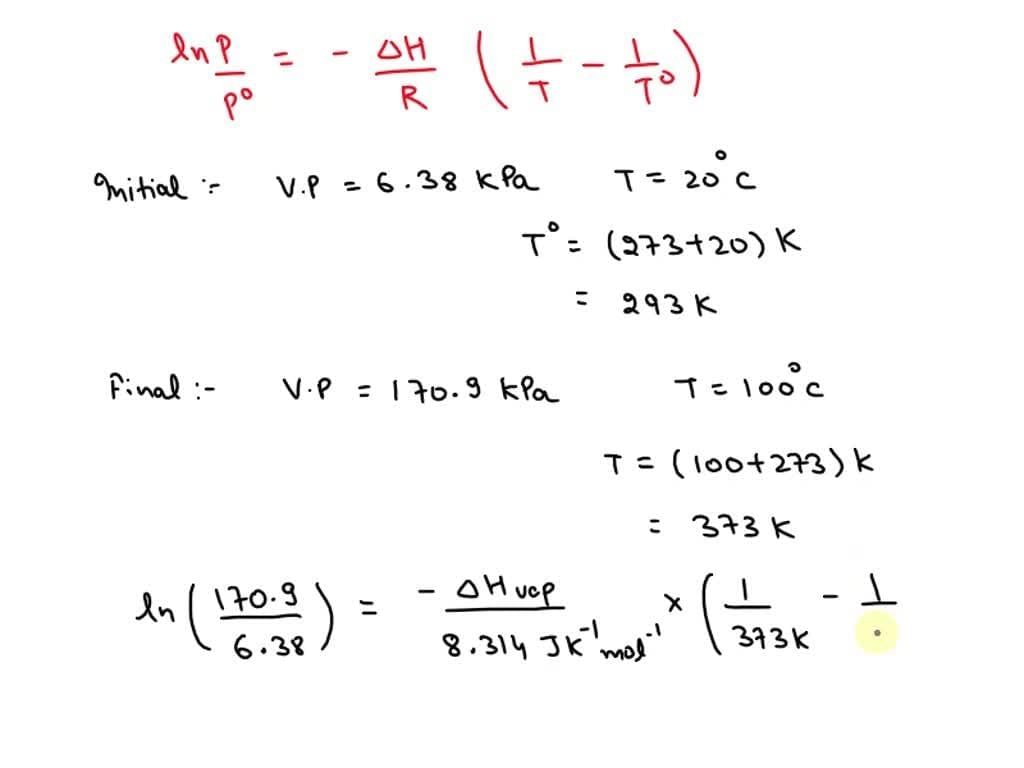 ln P/P° = - ΔH/R (1/T - 1/T°)
Initial :- V.P = 6.38 kPa T = 20°C
T° = (273+20) K
= 293 K
Final :- V.P = 170.9 kPa T = 100°C
T = (100+273) K
= 373 K
ln (170.9/6.38) = - ΔHvap/8.314 JK⁻¹ mol⁻¹ × (1/373K - 1/